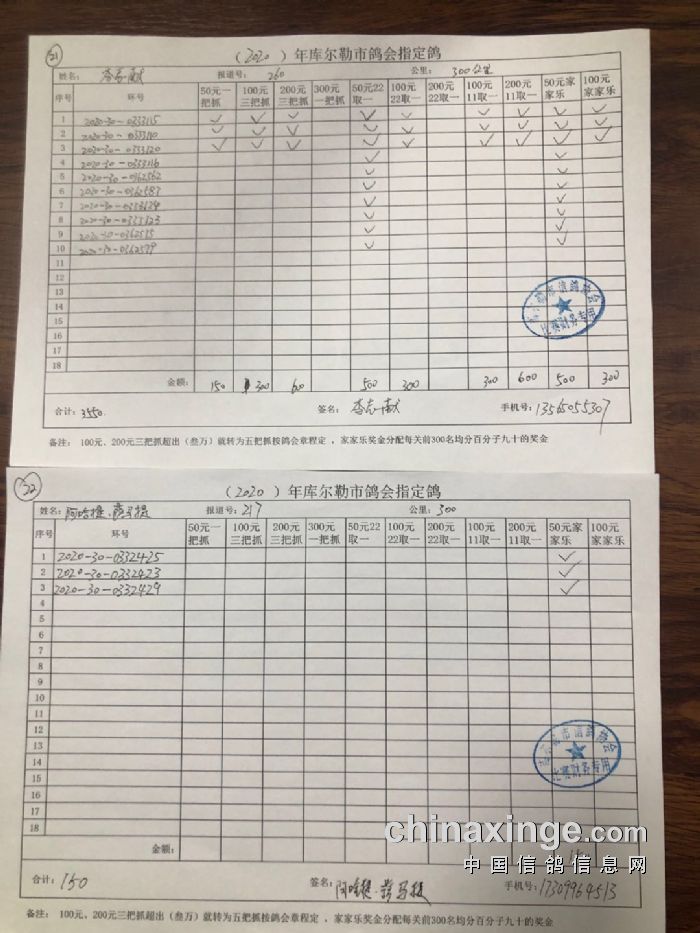 21
（2020）年库尔勒市鸽会指定鸽
姓名：李志献 报道号：260 公里：300公里
序号 环号 50元一把抓 100元三把抓 200元三把抓 300元一把抓 50元22取一 100元22取一 200元22取一 100元11取一 200元11取一 50元家家乐 100元家家乐
1 2020-30-0333115 ✓ ✓ ✓ ✓ ✓ ✓ ✓ ✓ ✓
2 2020-30-0333110 ✓ ✓ ✓ ✓ ✓ ✓ ✓ ✓ ✓
3 2020-30-0333120 ✓ ✓ ✓ ✓ ✓ ✓ ✓ ✓ ✓
4 2020-30-0333116 ✓ ✓
5 2020-30-0362562 ✓ ✓
6 2020-30-0362583 ✓ ✓
7 2020-30- ✓ ✓
8 2020-30- ✓ ✓
9 2020-30-0362515 ✓ ✓
10 2020-30-0362579 ✓ ✓
11
12
13
14
15
16
17
18
金额： 150 300 600 500 300 300 600 500 300
合计：3550. 签名：李志献 手机号：13565055307
备注： 100元、200元三把抓超出（叁万）就转为五把抓按鸽会章程定，家家乐奖金分配每关前300名均分百分子九十的奖金
库尔勒市信鸽协会
比赛财务专用
22
（2020）年库尔勒市鸽会指定鸽
姓名：阿哈提. 报道号：217 公里：300
序号 环号 50元一把抓 100元三把抓 200元三把抓 300元一把抓 50元22取一 100元22取一 200元22取一 100元11取一 200元11取一 50元家家乐 100元家家乐
1 2020-30-0332425 ✓
2 2020-30-0332423 ✓
3 2020-30-0332429 ✓
4
5
6
7
8
9
10
11
12
13
14
15
16
17
18
金额： 150
合计：150 签名：阿哈提. 手机号：17309964513
备注： 100元、200元三把抓超出（叁万）就转为五把抓按鸽会章程定，家家乐奖金分配每关前300名均分百分子九十的奖金
库尔勒市信鸽协会
比赛财务专用
chinaxinge.com
中国信鸽信息网